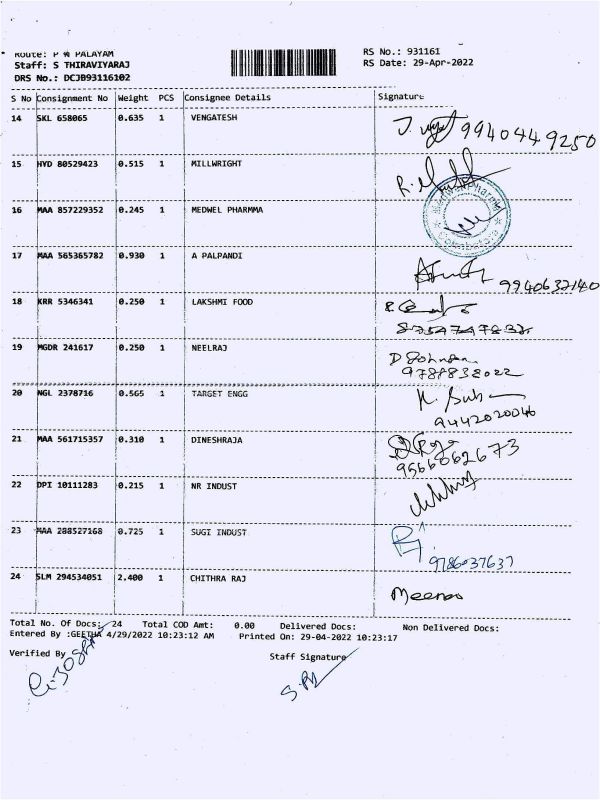 Route: P N PALAYAM
Staff: S THIRAVIYARAJ
DRS No.: DCJB93116102
RS No.: 931161
RS Date: 29-Apr-2022
S No Consignment No Weight PCS Consignee Details Signature
14 SKL 658065 0.635 1 VENGATESH 9940449250
15 HYD 80529423 0.515 1 MILLWRIGHT
16 MAA 857229352 0.245 1 MEDWEL PHARMMA Medwel Pharma Coimbatore
17 MAA 565365782 0.930 1 A PALPANDI 9940637140
18 KRR 5346341 0.250 1 LAKSHMI FOOD
19 MGDR 241617 0.250 1 NEELRAJ 9788838022
20 NGL 2378716 0.565 1 TARGET ENGG 9442020046
21 MAA 561715357 0.310 1 DINESHRAJA 9566062673
22 DPI 10111283 0.215 1 NR INDUST
23 MAA 288527168 0.725 1 SUGI INDUST 9786037637
24 SLM 294534051 2.400 1 CHITHRA RAJ Meena
Total No. Of Docs: 24 Total COD Amt: 0.00 Delivered Docs: Non Delivered Docs:
Entered By :GEETHA 4/29/2022 10:23:12 AM Printed On: 29-04-2022 10:23:17
Verified By Staff Signature